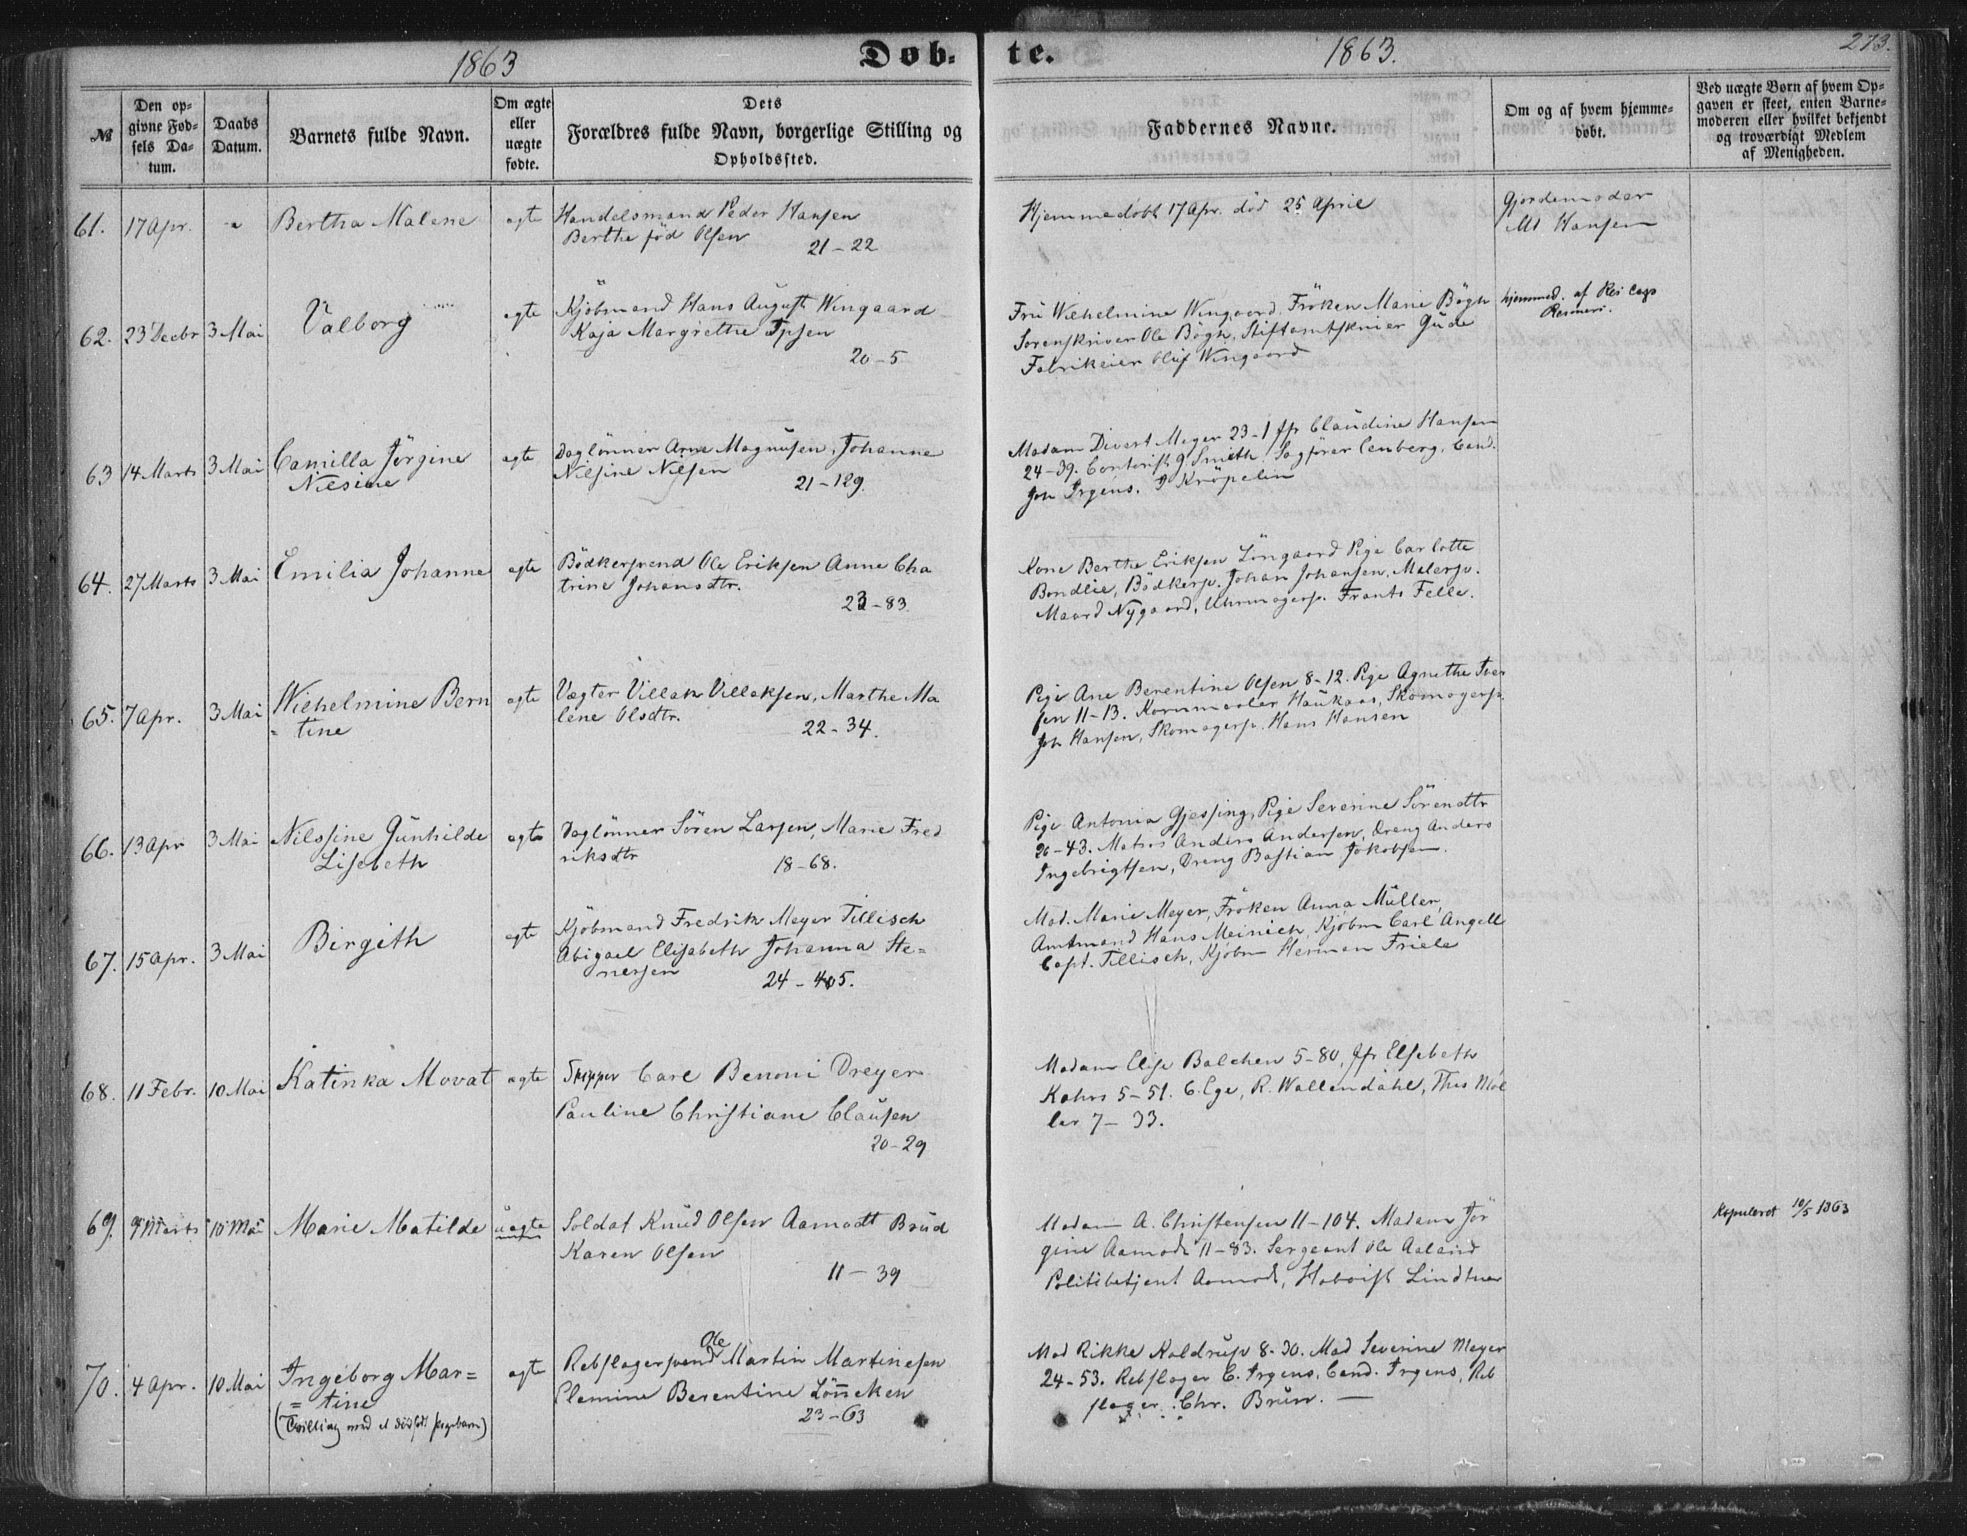 1863
Döb-
te.
1863.
273.
№
Den op-
givne Fød-
sels Da-
tum.
Daabs
Datum.
Barnets fulde Navn.
Om ægte
eller
uægte
fødte.
Dets
Forældres fulde Navn, borgerlige Stilling og
Opholdssted.
Faddernes Navne.
Om og af hvem hjemme-
døbt.
Ved uægte Børn af hvem Op-
gaven er skeet, enten Barne-
moderen eller hvilket bekjendt
og troværdigt Medlem
af Menigheden.
61. 17 Apr. Bertha Malene egte Handelsmand Peder Hansen
Berthe fød Olsen
21-22
Hjemmedøbt 17 Apr. død 25 April
Gjordemoder
Md Hansen
62. 23 Decbr 3 Mai Valborg egte Kjöbmand Hans August Wingaard
Kaja Margrethe Ipsen
20-5
Fru Wilhelmine Wingaard, Fröken Marie Bögh
Sorenskriver Ole Bögh, Stiftsamtskriver Gude
Fabrikeier Oluf Wingaard
hjemmed. af Res Cap
63 14 Marts 3 Mai Camilla Jörgine
Nilsine
egte Daglönner Arne Magnusen, Johanne
Nilsine Nilsen
21-129.
Madam Divert Meyer 23-1 Jfr Claudine Hansen
24-39. Contorist G. Smith Sagförer Cenberg, Cand.
Joh Irgens. J Kröpelin
64. 27 Marts 3 Mai Emilia Johanne egte Bödkersvend Ole Eriksen Anne Cha
trine Johansdtr.
23-83.
Kone Berthe Eriksen Löngaard Pige Carlotte
Bondlie, Bödkersv. Johan Johansen, Malersv.
Maard Nygaard, Uhrmagersv. Frants Felle.
65. 7 Apr. 3 Mai Wilhelmine Bern
= tine
egte Vægter Villak Villaksen, Marthe Ma
lene Olsdtr.
22-34.
Pige Ane Berentine Olsen 8-12. Pige Agnethe Iver
sen 11-13. Kornmaaler Haukaas, Skomagersv.
Joh Hansen, Skomagersv. Hans Hansen
66. 13 Apr 3 Mai Nilssine Gunhilde
Lisebeth
egte Daglönner Sören Larsen, Marie Fred
riksdtr
18-68.
Pige Antonia Gjessing, Pige Severine Sörendtr
26-43. Matros Anders Andersen, Dreng Anders
Ingebrigtsen, Dreng Bastian Jakobsen.
67. 15 Apr. 3 Mai Birgith egte Kjöbmand Fredrik Meyer Tillisch
Abigael Elisabeth Johanna Ste-
nersen
24-405.
Mad. Marie Meyer, Fröken Anna Müller,
Amtmand Hans Meinich, Kjöbm Carl Angell
Capt. Tillisch, Kjöbm Herman Friele
68. 11 Febr. 10 Mai Katinka Movat egte Skipper Carl Benoni Dreyer
Pauline Christiane Clausen
20-29
Madam Elise Balchen 5-80, Jfr Elsebeth
Kahrs 5-51. C. Ege, R. Wallendahl, Ths Möl
ler 7-33.
69. 9 Marts 10 Mai Marie Matilde uegte Soldat Knud Olsen Aamodt Brud
Karen Olsen
11-39
Madam A. Christensen 11-104. Madam Jör
gine Aamodt 11-83. Sergeant Ole Aaland
Politibetjent Aamodt, Hoboist Lindtner
Kopuleret 10/5 1863
70. 4 Apr. 10 Mai Ingeborg Mar=
= tine
(Tvilling med et dødfødt pigebarn)
egte Rebslagersvend Ole Martin Martinesen
Elemine Berentine Lönneken
23-63
Mad Rikke Koldrup 8-30. Mad Severine Meyer
24-53. Rebslager C. Irgens, Cand. Irgens, Reb
slager Chr. Brun.